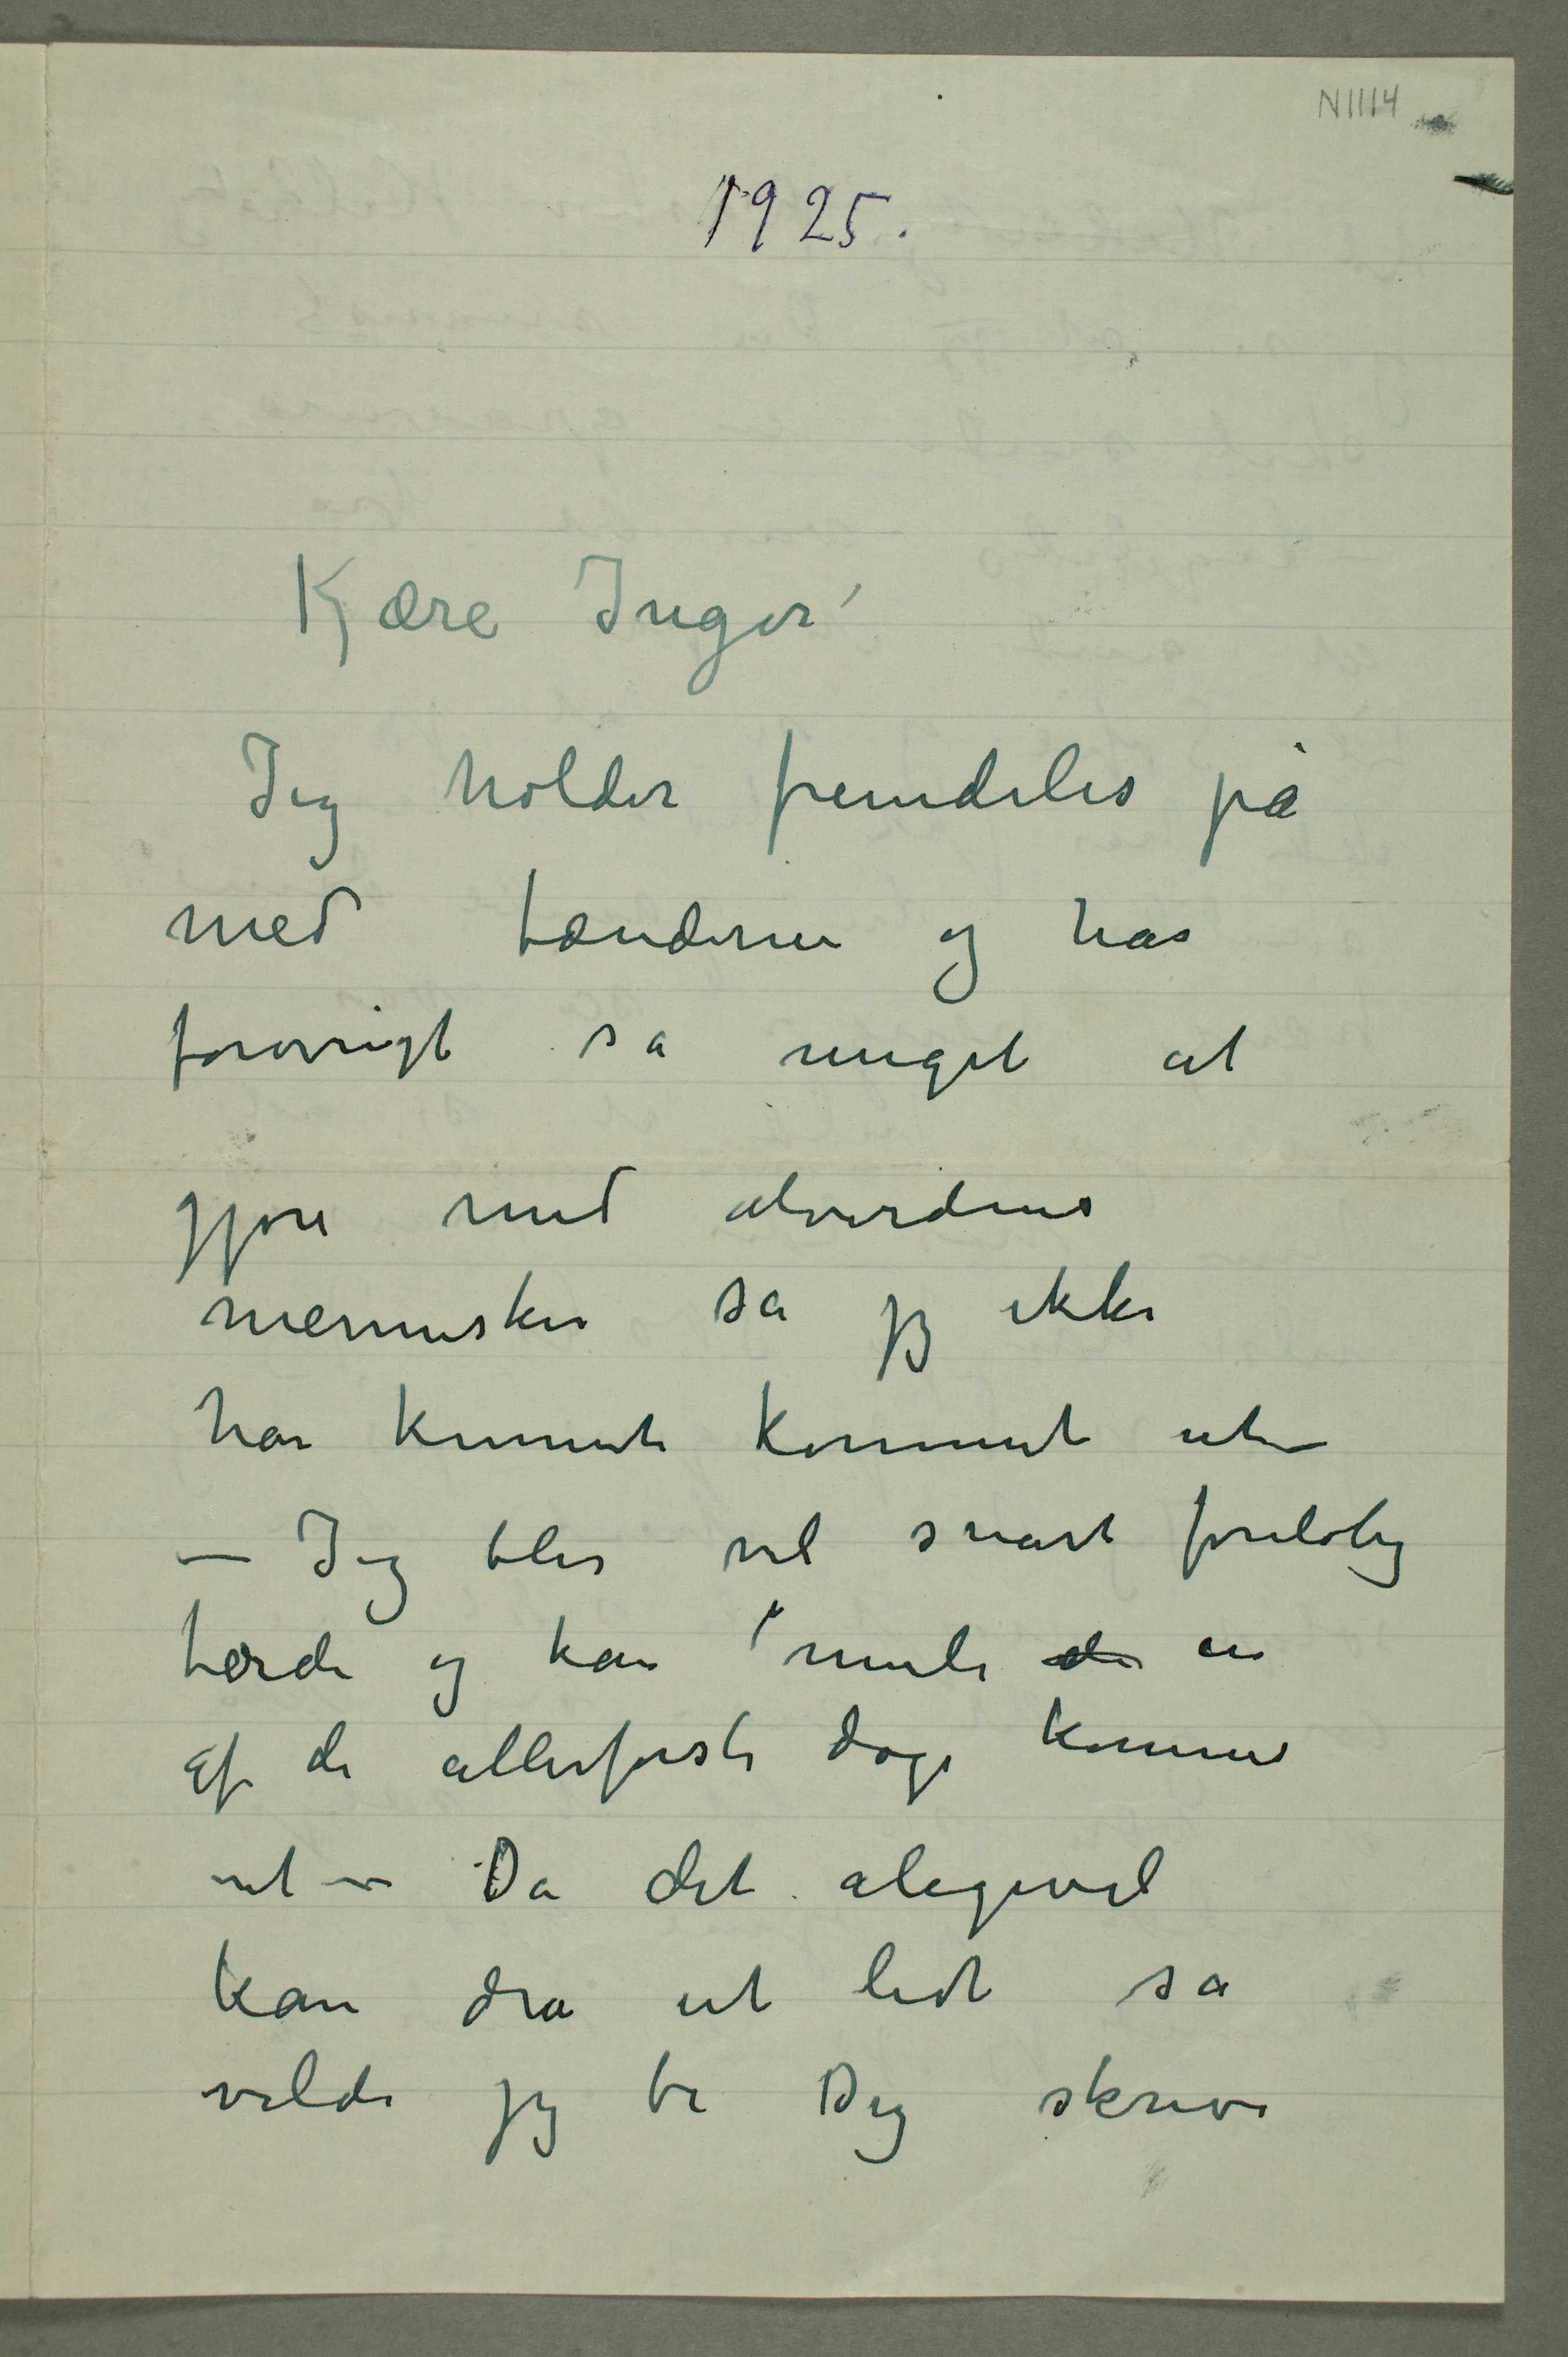 N1114
1925.
Kjære Inger
Jeg holder fremdeles på
med tænderne og har
forovrigt så meget at
gjøre med alverdens
mennesker så jeg ikke
har kunnet kommet ut –
– Jeg blir vel snart foreløbig
færdi og kan en
af de allerførste dage komme
ut – Da det alegevel
kan dra ut lidt så
vilde jeg be Dig skrive